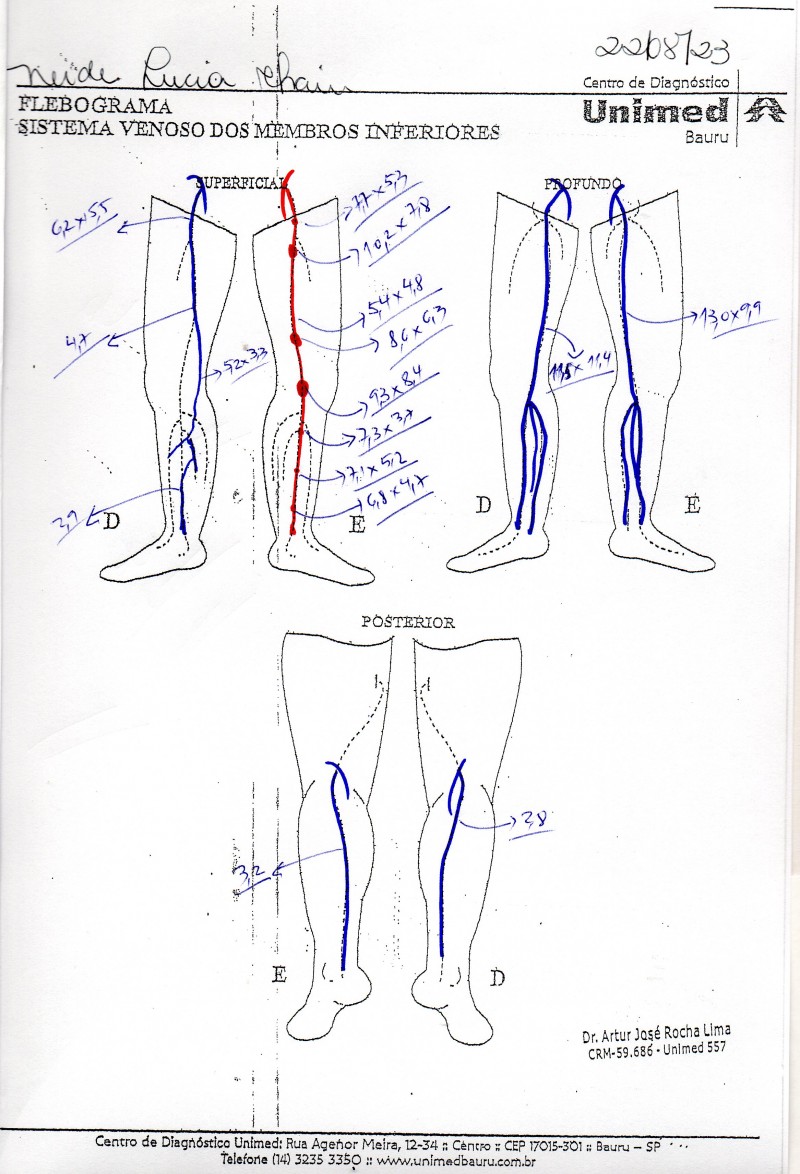 22/08/23
Neide Lucia
Centro de Diagnóstico
Unimed
Bauru
FLEBOGRAMA
SISTEMA VENOSO DOS MEMBROS INFERIORES
SUPERFICIAL
PROFUNDO
6,2 x 5,5
7,7 x 5,3
10,2 x 7,8
4,7
5,4 x 4,8
8,6 x 6,3
13,0 x 9,9
5,2 x 3,3
11,5 x 11,4
9,3 x 8,4
7,3 x 3,7
7,1 x 5,2
6,8 x 4,7
D
E
D
E
POSTERIOR
3,8
3,2
E
D
Dr. Artur José Rocha Lima
CRM-59.686 - Unimed 557
Centro de Diagnóstico Unimed: Rua Agenor Meira, 12-34 :: Centro :: CEP 17015-301 :: Bauru – SP
Telefone (14) 3235 3350 :: www.unimedbauru.com.br